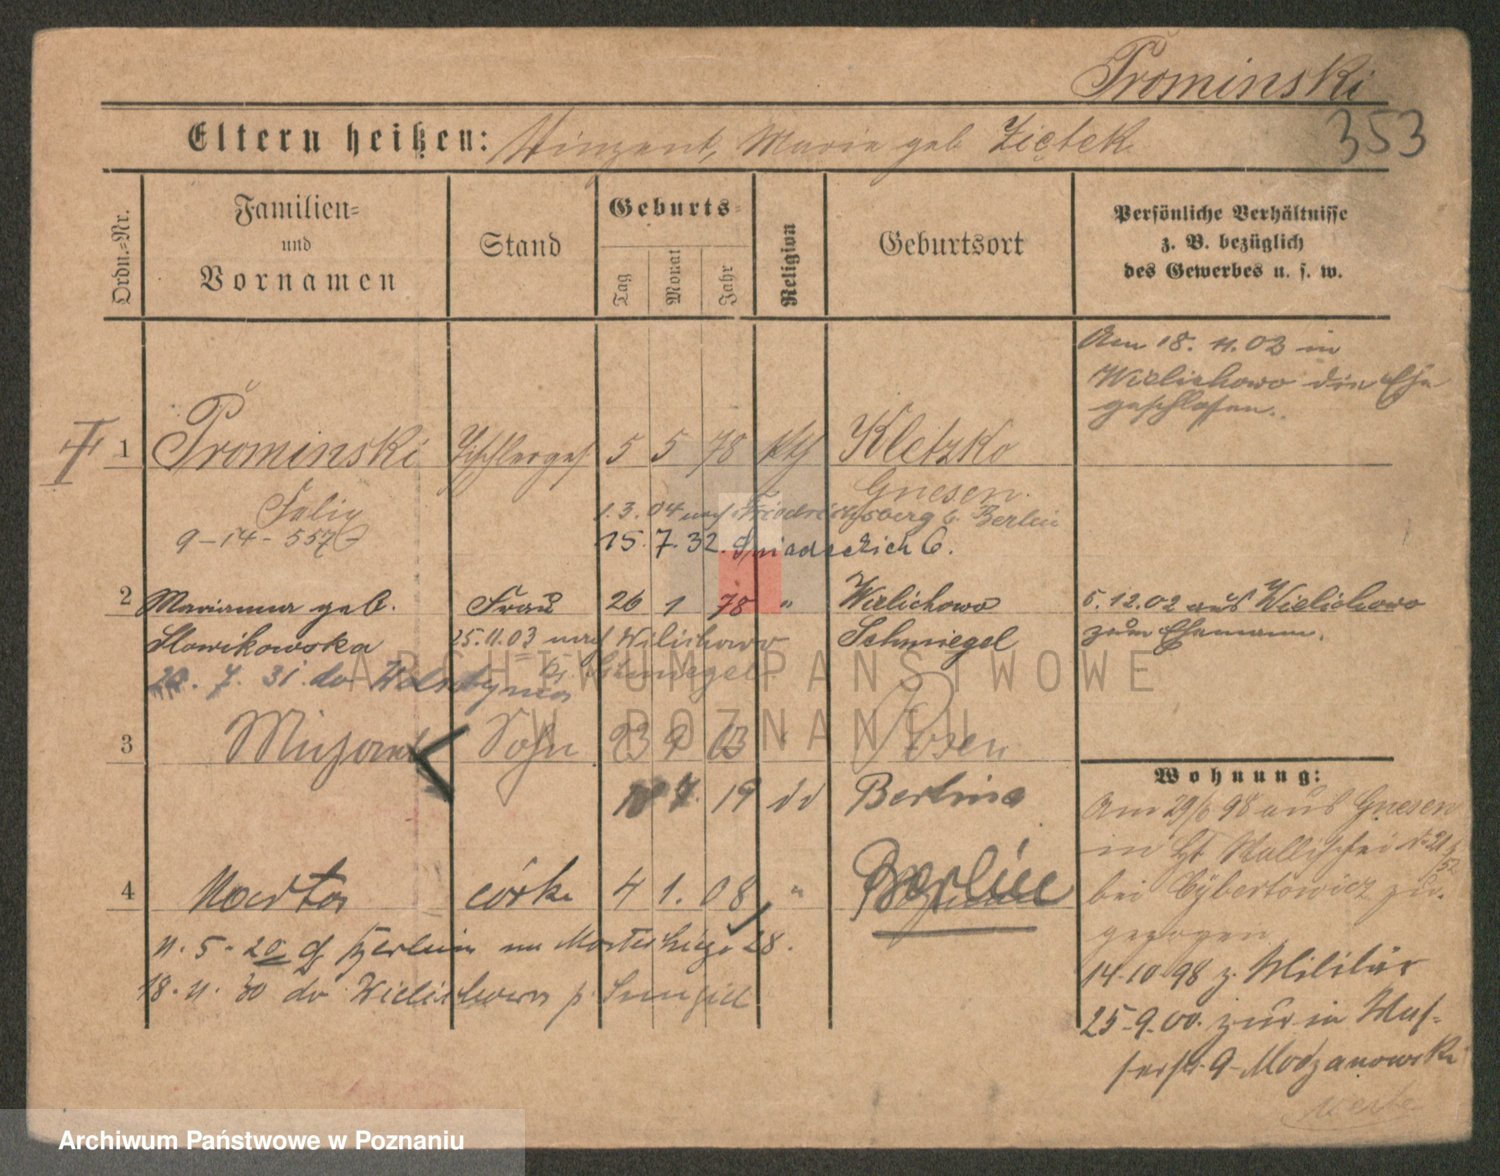 Prominski
353
Eltern heißen: Vinzent, Marie geb Ziętek
Ordn.-Nr.
Familien-
und
Vornamen
Stand
Geburts-
Tag
Monat
Jahr
Religion
Geburtsort
Persönliche Verhältnisse
z. B. bezüglich
des Gewerbes u. s. w.
Am 18. 11. 02 in
Wielichowo die Ehe
geschlossen.
1 Prominski Tischlerges 5 5 78 kth Kletzko
Gnesen.
Felix
1.3.04 nach Friedrichsberg b. Berlin
9-14-557
15.7.32.
2 Marianna geb. Frau 26 1 78 " Wielichowo
Słowikowska
25.11.03 nach Wilichowo
Schmiegel
Kr. Schmiegel
5.12.02 aus Wielichowo
zum Ehemann.
7. 31. do
3 Sohn 23 9 03 " Posen
7. 19 dd Berlina
4 Marta córka 4 1. 08 " Berlin
11. 5 - 20 z Berlina 28.
18. 11. 30 do Wielichowa p. Śmigiel
Wohnung:
Am 29/6 98 aus Gnesen
in St. Wallischei No 21
bei Cybertowicz zu-
gezogen
14-10-98 z. Militär
25-9-00. zur in Was-
serstr. 9 - Modzanowski
ARCHIWUM PAŃSTWOWE
W POZNANIU
Archiwum Państwowe w Poznaniu